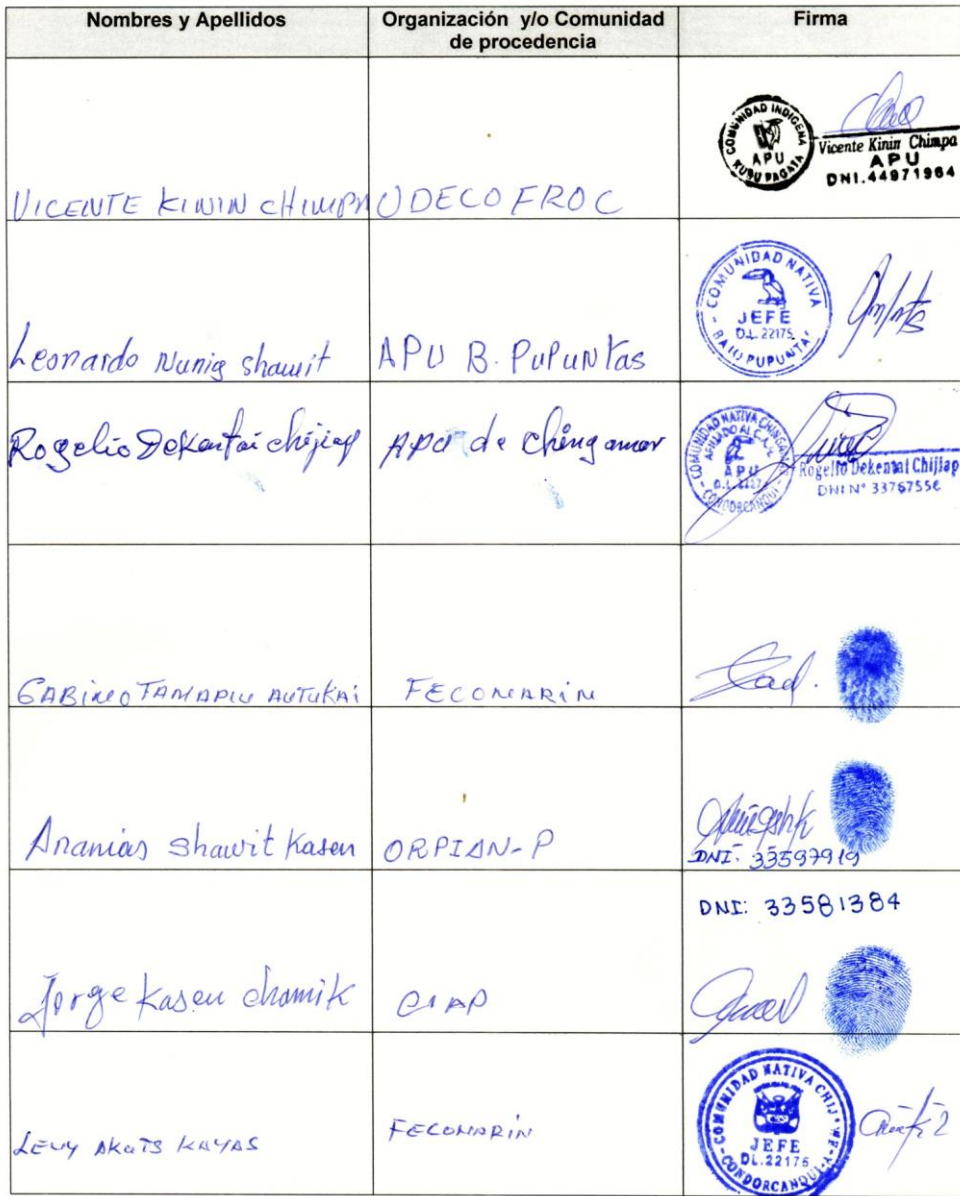 Nombres y Apellidos
Organización y/o Comunidad de procedencia
Firma
VICENTE KININ CHIMPA
ODECOFROC
COMUNIDAD INDIGENA
APU
KUSU PAGATA
Vicente Kinin Chimpa
APU
DNI.44971964
Leonardo Nunig shawit
APU B. PUPUNtas
COMUNIDAD NATIVA
JEFE
D.L. 22175
BAJU PUPUNTA
Rogelio Dekentai chijiap
Apu de chingamar
COMUNIDAD NATIVA
APU
CONDORCANQUI
Rogelio Dekentai Chijiap
DNI N° 33767556
GABINO
FECONARIN
Ananias shawit Kasen
ORPIAN-P
DNI: 33597919
DNI: 33581384
Jorge Kasen chamik
CIAP
LEVY AKATS KAYAS
FECONARIN
COMUNIDAD NATIVA
JEFE
DL.22175
CONDORCANQUI